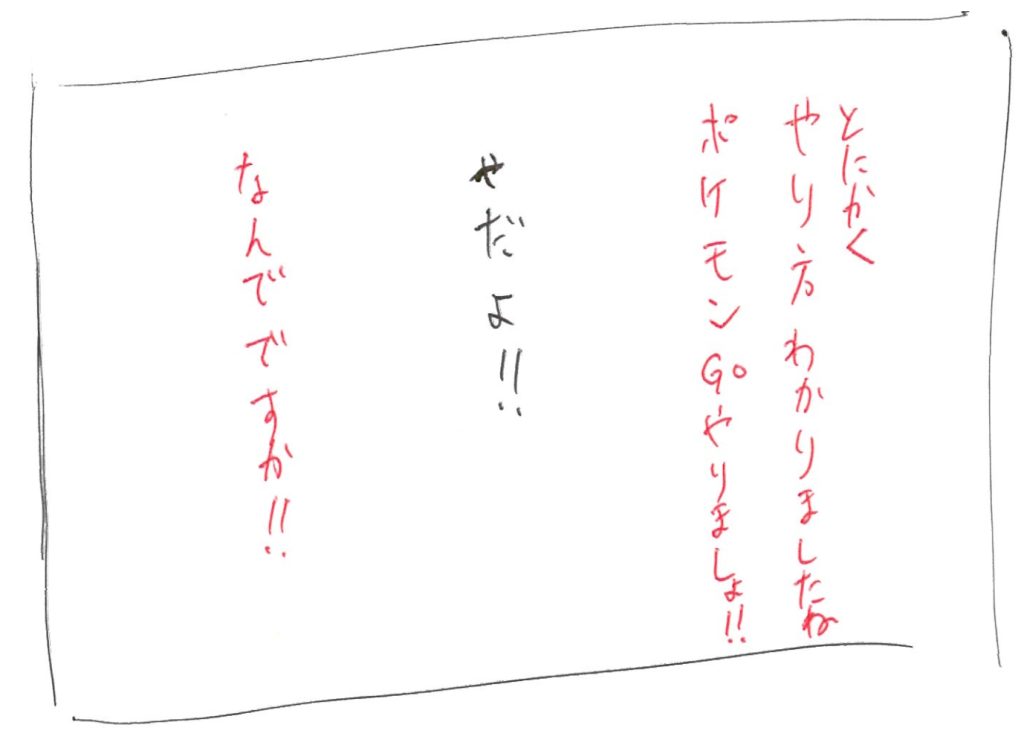 とにかく
やり方わかりましたね
ポケモンGoやりましょ!!
やだよ!!
なんでですか!!